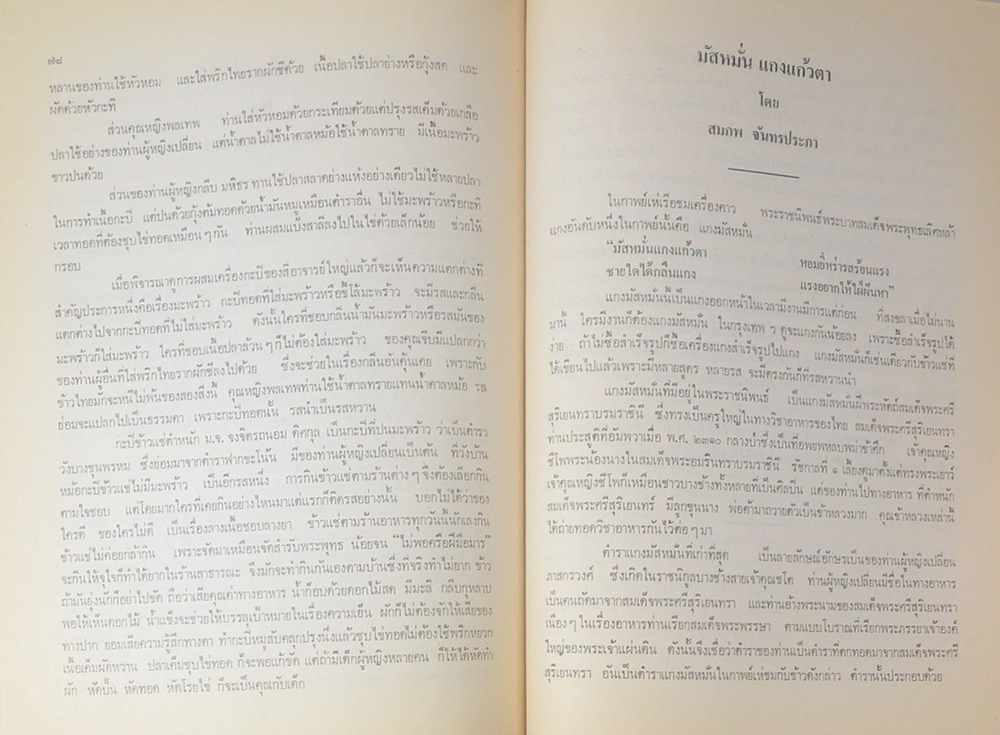 ๗๘
หลานของท่านใช้หัวหอม และใส่พริกไทยรากผักชีด้วย เนื้อปลาใช้ปลาย่างหรือกุ้งสด และ
ผัดด้วยหัวกะทิ
ส่วนคุณหญิงพลเทพ ท่านใส่หัวหอมด้วยกระเทียมด้วยแต่ปรุงรสเค็มด้วยเกลือ
ปลาใช้อย่างของท่านผู้หญิงเปลี่ยน แต่น้ำตาลไม่ใช้น้ำตาลหม้อใช้น้ำตาลทราย มีเนื้อมะพร้าว
ขาวปนด้วย
ส่วนของท่านผู้หญิงกลีบ มหิธร ท่านใช้ปลาสลาดย่างแห้งอย่างเดียวไม่ใช้หลายปลา
ในการทำเนื้อกะปิ แต่ปนด้วยกุ้งต้มทอดด้วยน้ำมันหมูเหมือนตำราอื่น ไม่ใช้มะพร้าวหรือกะทิ
เวลาทอดที่ต้องชุบไข่ทอดเหมือนๆ กัน ท่านผสมแป้งสาลีลงไปในไข่ด้วยเล็กน้อย ช่วยให้
กรอบ
เมื่อพิจารณาดูการผสมเครื่องกะปิของสี่อาจารย์ใหญ่แล้วก็จะเห็นความแตกต่างที่
สำคัญประการหนึ่งคือเรื่องมะพร้าว กะปิทอดที่ใส่มะพร้าวหรือขี้โล้มะพร้าว จะมีรสและกลิ่น
แตกต่างไปจากกะปิทอดที่ไม่ใส่มะพร้าว ดังนั้นใครที่ชอบกลิ่นน้ำมันมะพร้าวหรือรสมันของ
มะพร้าวก็ใส่มะพร้าว ใครที่ชอบเนื้อปลาล้วนๆ ก็ไม่ต้องใส่มะพร้าว ของคุณจีบมีแปลกกว่า
ของท่านผู้อื่นที่ใส่พริกไทยรากผักชีลงไปด้วย ซึ่งจะช่วยในเรื่องกลิ่นอันคุ้นเคย เพราะกับ
ข้าวไทยมักจะหนีไม่พ้นของสองสิ่งนี้ คุณหญิงพลเทพท่านใช้น้ำตาลทรายแทนน้ำตาลหม้อ รส
ย่อมจะแปลกไปเป็นธรรมดา เพราะกะปิทอดนั้น รสนำเป็นรสหวาน
กะปิข้าวแช่ตำหนัก ม.จ. จงจิตรถนอม ดิศกุล เป็นกะปิที่ปนมะพร้าว ว่าเป็นตำรา
วังบางขุนพรหม ซึ่งย่อมมาจากตำราฟากขะโน้น มีของท่านผู้หญิงเปลี่ยนเป็นต้น ที่วังบ้าน
หม้อกะปิข้าวแช่ไม่มีมะพร้าว เป็นอีกรสหนึ่ง การกินข้าวแช่ตามร้านต่างๆ จึงต้องเลือกกิน
ตามใจชอบ แต่โดยมากใครที่เคยกินอย่างไหนมาแต่แรกก็ติดรสอย่างนั้น บอกไม่ได้ว่าของ
ใครดี ของใครไม่ดี เป็นเรื่องลางเนื้อชอบลางยา ข้าวแช่ตามร้านอาหารทุกวันนี้นักเลงกิน
ข้าวแช่ไม่ค่อยกล้ากิน เพราะจัดมาเหมือนจัดสำรับพระพุทธ น้อยจน "ไม่พอครือฝีมือมาร"
จะกินให้จุใจก็ทำได้ยากในร้านสาธารณะ จึงมักจะทำกินกันเองตามบ้านซึ่งที่จริงทำไม่ยาก ข้าว
ถ้ามันยุ่งนักก็อย่าไปขัด ถือว่าเสียคุณค่าทางอาหาร น้ำก็อบด้วยดอกไม้สด มีมะลิ กลีบกุหลาบ
พอให้เห็นดอกไม้ น้ำแข็งจะช่วยให้บรรลุเป้าหมายในเรื่องความเย็น ผักก็ไม่ต้องจักให้เสี้ยของ
ทางปาก ยอมเสียความรู้สึกทางตา ทำกะปิหมูสับคลุกปรุงนึ่งแล้วชุบไข่ทอดไม่ต้องใช้พริกหยวก
เนื้อเค็มผัดหวาน ปลาเค็มชุบไข่ทอด ก็จะพอแก้ขัด แต่ถ้ามีเด็กผู้หญิงหลายคน ก็ให้ได้หัดทำ
ผัก หัดปั้น หัดทอด หัดโรยไข่ ก็จะเป็นคุณกับเด็ก
มัสหมั่น แกงแก้วตา
โดย
สมภพ จันทรประภา
ในกาพย์เห่เรือชมเครื่องคาว พระราชนิพนธ์พระบาทสมเด็จพระพุทธเลิศหล้า
แกงอันดับหนึ่งในกาพย์นั้นคือ แกงมัสหมั่น
"มัสหมั่นแกงแก้วตา หอมยี่หร่ารสร้อนแรง
ชายใดได้กลืนแกง แรงอยากให้ใฝ่ฝันหา"
แกงมัสหมั่นนี้เป็นแกงออกหน้าในเวลามีงานมีการแต่ก่อน ที่สงขลาเมื่อไม่นาน
มานี้ ใครมีงานก็ต้องแกงมัสหมั่น ในกรุงเทพ ๆ ดูจะแกงกันน้อยลง เพราะซื้อสำเร็จรูปได้
ง่าย ถ้าไม่ซื้อสำเร็จรูปก็ซื้อเครื่องแกงสำเร็จรูปไปแกง แกงมัสหมั่นก็เช่นเดียวกับข้าวแช่ที่
ได้เขียนไปแล้วเพราะมีหลายสูตร หลายรส จะมีตรงกันก็ที่รสหวานนำ
แกงมัสหมั่นที่มีอยู่ในพระราชนิพนธ์ เป็นแกงมัสหมั่นฝีพระหัตถ์สมเด็จพระศรี
สุริเยนทราบรมราชินี ซึ่งทรงเป็นครูใหญ่ในทางวิชาอาหารของไทย สมเด็จพระศรีสุริเยนทรา
ท่านประสูติที่อัมพวาเมื่อ พ.ศ. ๒๓๑๐ กลางป่าซึ่งเป็นที่อพยพหลบพม่าข้าศึก เจ้าคุณหญิง
ชีโพพระน้องนางในสมเด็จพระอมรินทราบรมราชินี รัชกาลที่ ๑ เลี้ยงดูมาตั้งแต่ทรงพระเยาว์
เจ้าคุณหญิงชีโพก็เหมือนชาวบางช้างทั้งหลายที่เป็นศิลปิน แต่ของท่านไปทางอาหาร ที่ตำหนัก
สมเด็จพระศรีสุริเยนทร์ มีลูกขุนนาง พ่อค้ามาถวายตัวเป็นข้าหลวงมาก คุณข้าหลวงเหล่านี้
ได้ถ่ายทอดวิชาอาหารกันไว้ต่อๆ มา
ตำราแกงมัสหมั่นที่เก่าที่สุด เป็นลายลักษณ์อักษรเป็นของท่านผู้หญิงเปลี่ยน
ภาสกรวงศ์ ซึ่งเกิดในราชนิกุลบางช้างสายเจ้าคุณชูโต ท่านผู้หญิงเปลี่ยนมีชื่อในทางอาหาร
เป็นคนถัดมาจากสมเด็จพระศรีสุริเยนทรา และท่านอ้างพระนามของสมเด็จพระศรีสุริเยนทรา
เนืองๆ ในเรื่องอาหารท่านเรียกสมเด็จพระพรรษา ตามแบบโบราณที่เรียกพระภรรยาเจ้าองค์
ใหญ่ของพระเจ้าแผ่นดิน ดังนั้นจึงเชื่อว่าตำราของท่านเป็นตำราที่ตกทอดมาจากสมเด็จพระศรี
สุริเยนทรา อันเป็นตำราแกงมัสหมั่นในกาพย์เห่ชมกับข้าวดังกล่าว ตำรานั้นประกอบด้วย